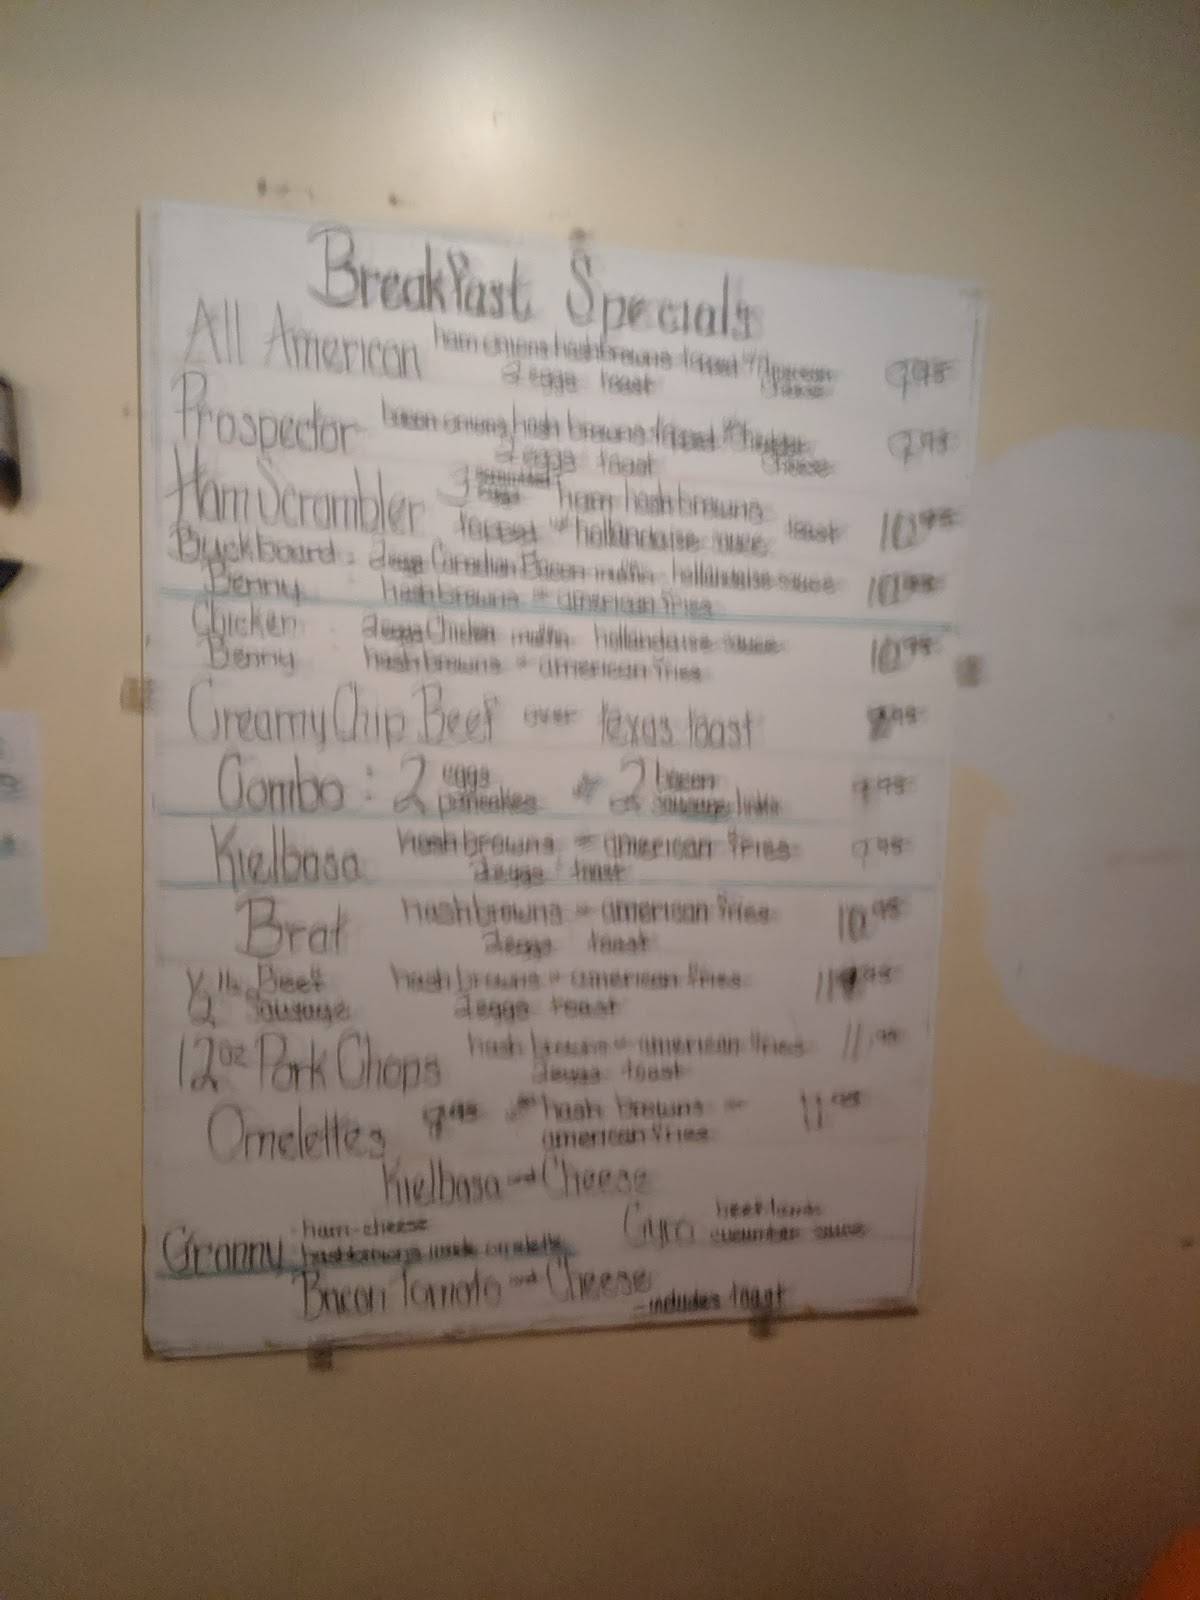 Breakfast Specials
All American ham onions hashbrowns topped w/ American Cheese 9.95
2 eggs toast
Prospector bacon onions hash browns topped w/ Cheddar Cheese 9.95
2 eggs toast
Ham Scrambler 3 scrambled eggs ham hashbrowns
topped w/ hollandaise sauce toast 10.95
Buckboard: 2 eggs Canadian Bacon muffin hollandaise sauce 10.95
Benny hashbrowns or american fries
Chicken 2 eggs Chicken muffin hollandaise sauce
Benny hashbrowns or american fries 10.95
Creamy Chip Beef over texas toast
Combo: 2 eggs 2 bacon 9.95
2 pancakes or 2 sausage links
Kielbasa hashbrowns or american fries 9.95
2 eggs toast
Brat hashbrowns or american fries 10.95
2 eggs toast
1/2 lb. Beef hash browns or american fries
Sausage 2 eggs toast
12 oz Pork Chops hash browns or american fries 11.95
2 eggs toast
Omelettes hash browns or 11.95
american fries
Kielbasa and Cheese
Granny ham-cheese
hashbrowns inside omelette
Gyro cucumber sauce
Bacon Tomato and Cheese
-includes toast